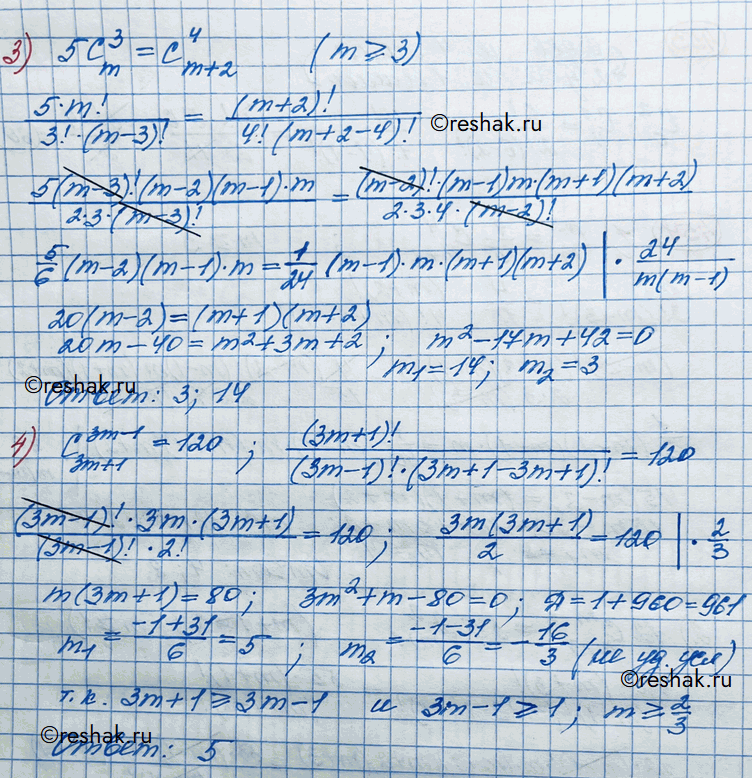 3) 5C_m^3 = C_{m+2}^4 (m ⩾ 3)
5·m! / 3!·(m-3)! = (m+2)! / 4!(m+2-4)! ©reshak.ru
5(m-3)!(m-2)(m-1)·m / 2·3·(m-3)! = (m-2)!·(m-1)m·(m+1)(m+2) / 2·3·4·(m-2)!
5/6 (m-2)(m-1)·m = 1/24 (m-1)·m·(m+1)(m+2) | · 24 / m(m-1)
20(m-2)=(m+1)(m+2)
20m-40=m²+3m+2; m²-17m+42=0
m₁=14; m₂=3
©reshak.ru
Ответ: 3; 14
4) C_{3m+1}^{3m-1} = 120; (3m+1)! / (3m-1)!·(3m+1-3m+1)! = 120
(3m-1)!·3m·(3m+1) / (3m-1)!·2! = 120; 3m(3m+1) / 2 = 120 | · 2/3
m(3m+1)=80; 3m²+m-80=0; Д=1+960=961
m₁ = -1+31 / 6 = 5; m₂ = -1-31 / 6 = -16/3 (не уд. усл)
©reshak.ru
т.к. 3m+1 ⩾ 3m-1 и 3m-1 ⩾ 1; m ⩾ 2/3
©reshak.ru
Ответ: 5